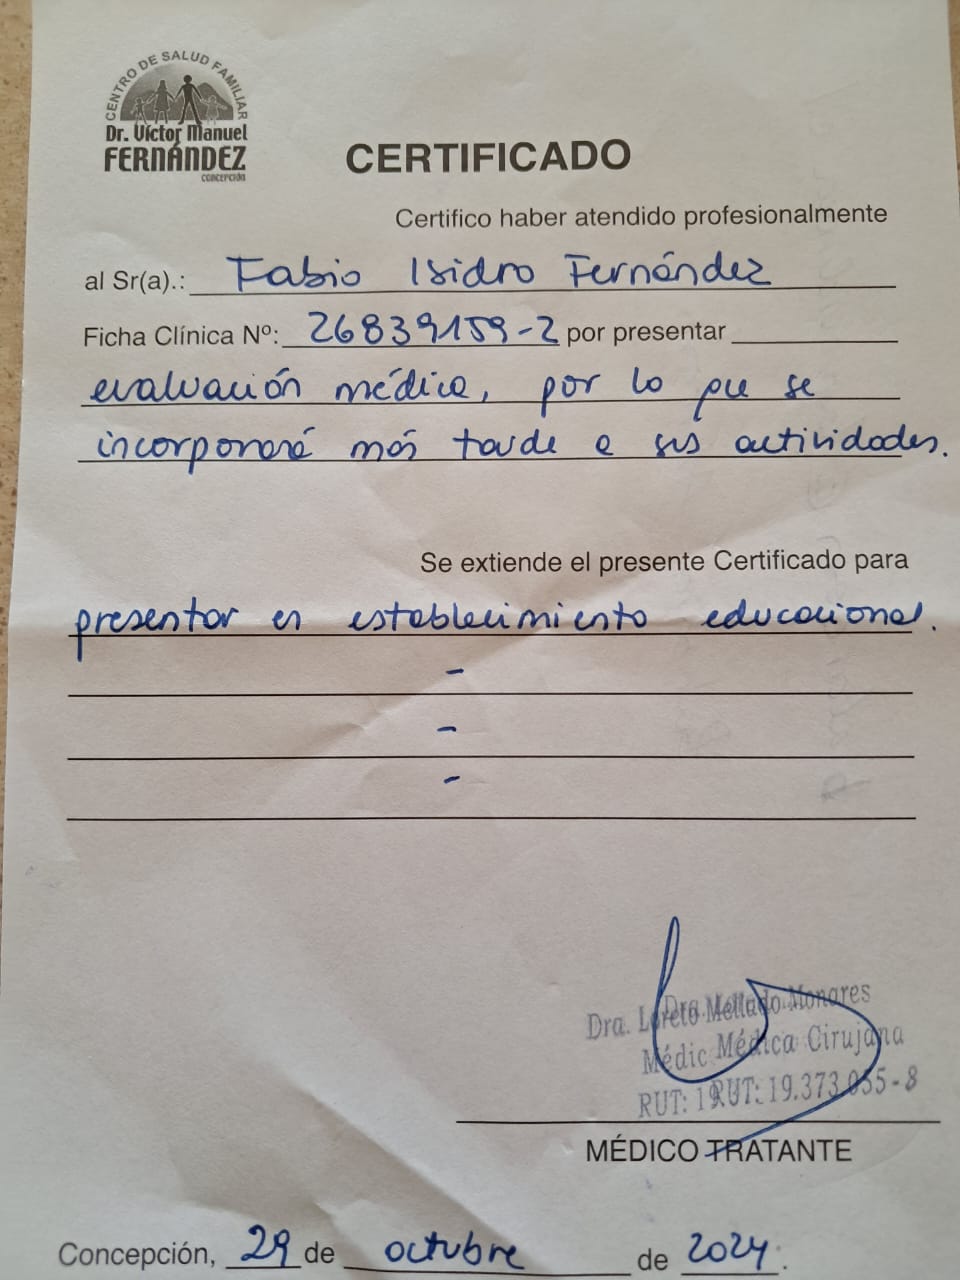 CENTRO DE SALUD FAMILIAR
Dr. Víctor Manuel
FERNÁNDEZ
CONCEPCIÓN
CERTIFICADO
Certifico haber atendido profesionalmente
al Sr(a).: Fabio Isidro Fernández
Ficha Clínica Nº: 26839159-2 por presentar
evaluación médica, por lo que se
incorporará más tarde a sus actividades.
Se extiende el presente Certificado para
presentar en establecimiento educacional.
-
-
-
Dra. Loreto Mellado Monares
Médica Cirujana
RUT: 19.373.055-8
MÉDICO TRATANTE
Concepción, 29 de octubre de 2024.